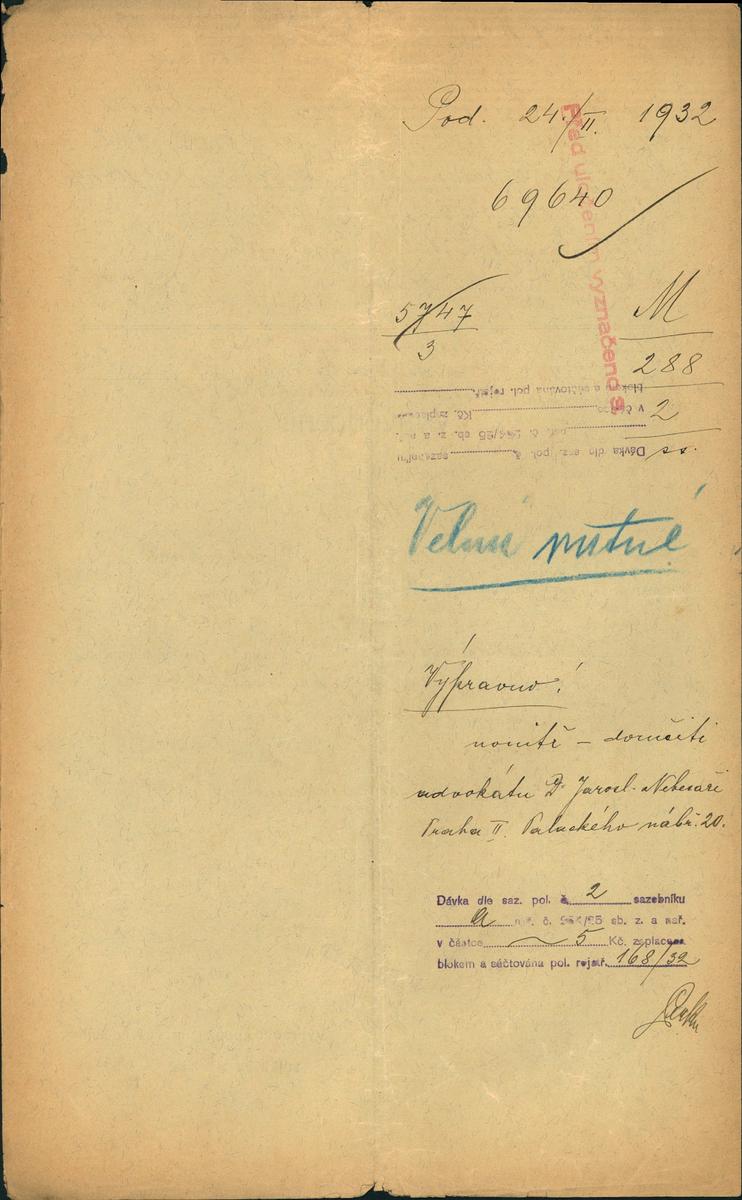 Pod. 24./II. 1932
69640
Před uložením vyznačeno s
5747
3
M
288
2
ss.
Dávka dle saz. pol. č. sazebníku
nař. č. 254/25 sb. z. a nař.
v částce Kč. zaplacena
blokem a súčtována pol. rejstř.
Velmi nutné
Výpravno!
novitě – doručiti
advokátu Dr Jarosl.
Praha II. Palackého nábř. 20.
Dávka dle saz. pol. č. 2 sazebníku
a nař. č. 254/25 sb. z. a nař.
v částce 5 Kč. zaplacena
blokem a súčtována pol. rejstř. 168/32